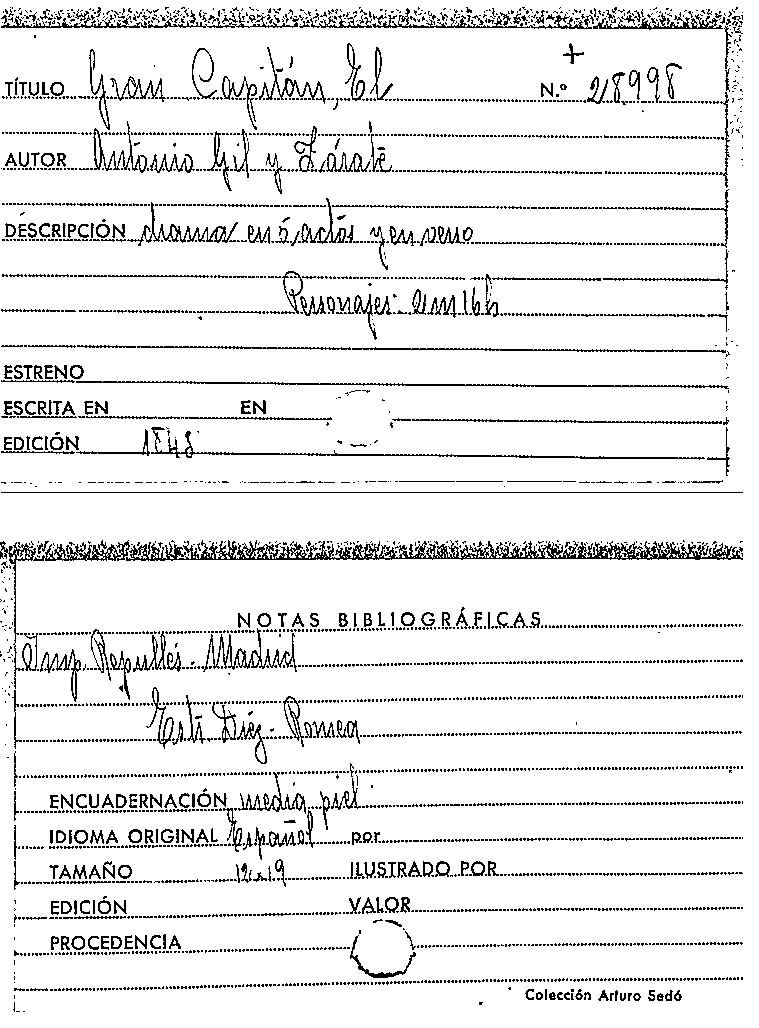 +
TÍTULO Gran Capitán, El N.º 28998
AUTOR Antonio Gil y Zárate
DESCRIPCIÓN drama en 5 actos y en verso
Personajes: 2 m 16 h
ESTRENO
ESCRITA EN EN
EDICIÓN 1848
NOTAS BIBLIOGRÁFICAS
Imp. Repullés - Madrid
Diez - Romea
ENCUADERNACIÓN media piel
IDIOMA ORIGINAL Español por
TAMAÑO 12x19 ILUSTRADO POR
EDICIÓN VALOR
PROCEDENCIA
Colección Arturo Sedó